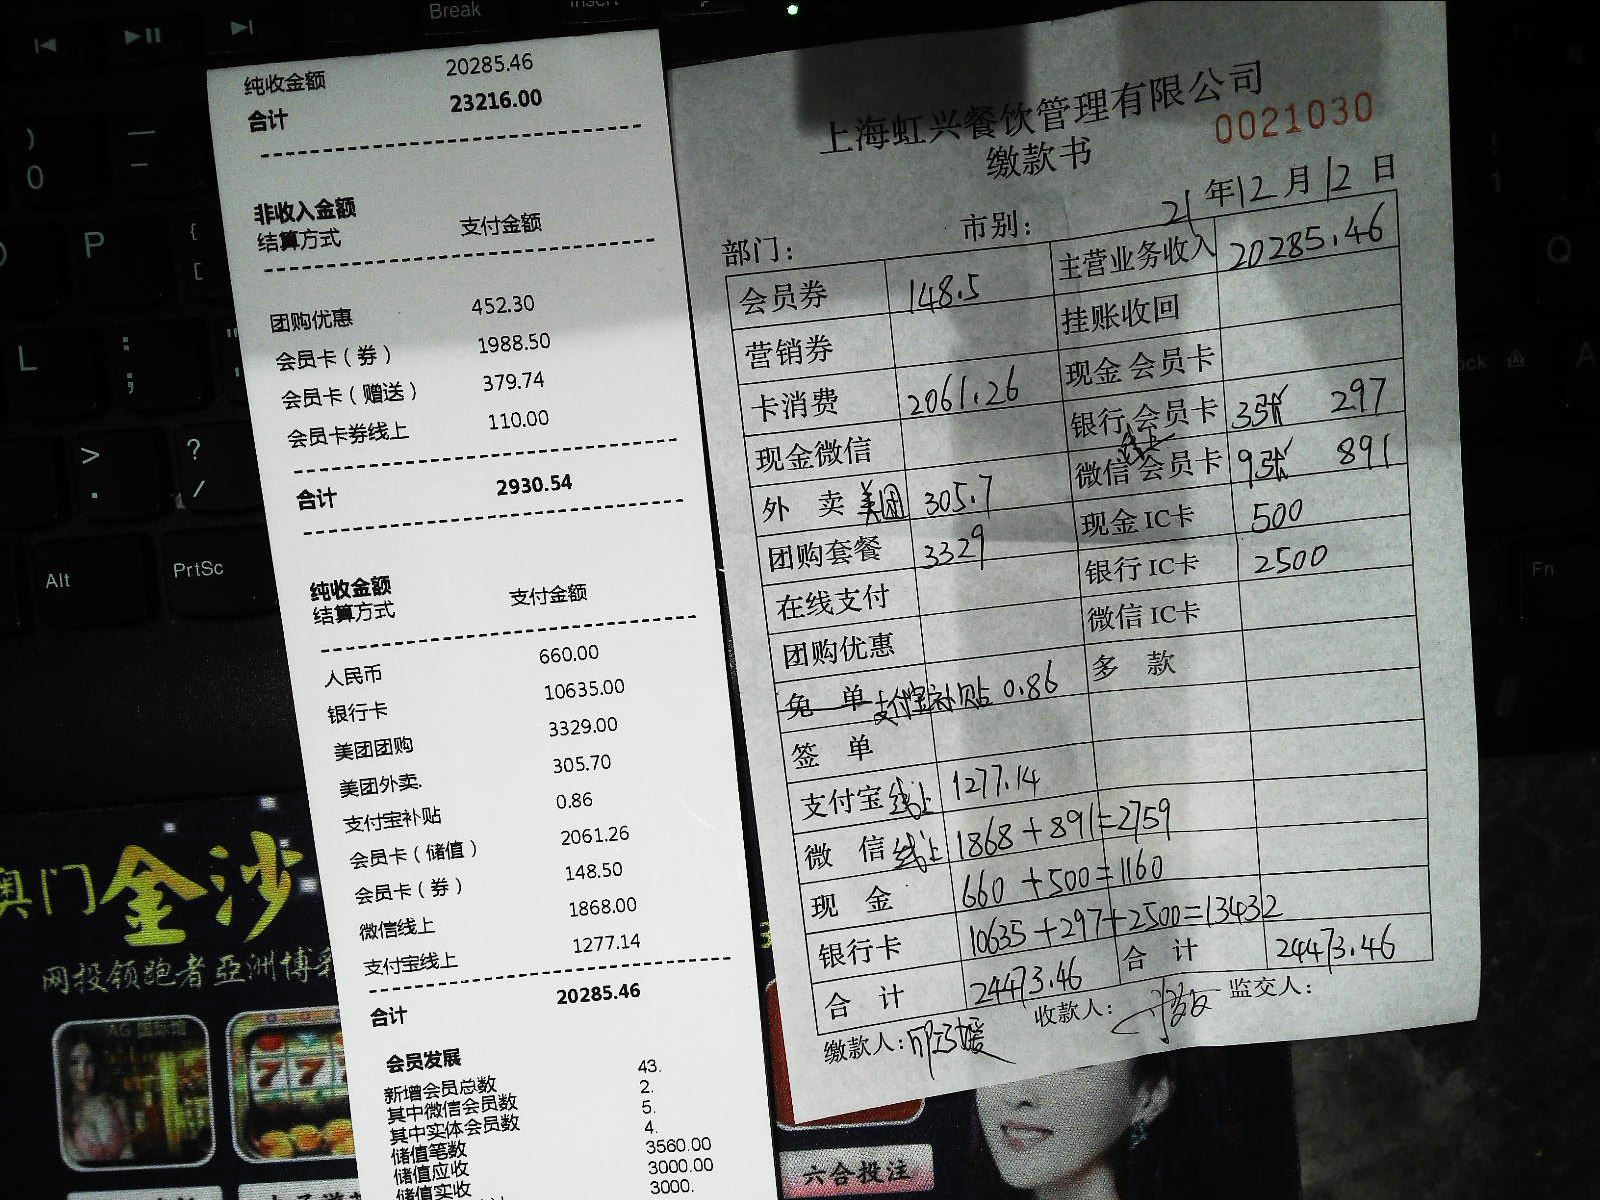 Break
Insert
Fn
纯收金额 20285.46
合计 23216.00
非收入金额
结算方式 支付金额
团购优惠 452.30
会员卡（券） 1988.50
会员卡（赠送） 379.74
会员卡券线上 110.00
合计 2930.54
纯收金额
结算方式 支付金额
人民币 660.00
银行卡 10635.00
美团团购 3329.00
美团外卖. 305.70
支付宝补贴 0.86
会员卡（储值） 2061.26
会员卡（券） 148.50
微信线上 1868.00
支付宝线上 1277.14
合计 20285.46
会员发展
新增会员总数 43.
其中微信会员数 2.
其中实体会员数 5.
储值笔数 4.
储值应收 3560.00
储值实收 3000.00
3000.
上海虹兴餐饮管理有限公司
缴款书 0021030
21 年 12 月 12 日
部门： 市别：
会员券 148.5 主营业务收入 20285.46
营销券 挂账收回
卡消费 2061.26 现金 会员卡
现金微信 银行 会员卡 3张 297
外 卖 美团 305.7 微信 线上 会员卡 9张 891
团购套餐 3329 现金 IC卡 500
在线支付 银行 IC卡 2500
团购优惠 微信 IC卡
免 单 支付宝补贴 0.86 多 款
签 单
支付宝 线上 1277.14
微 信 线上 1868+891=2759
现 金 660+500=1160
银行卡 10635+297+2500=13432
合 计 24473.46 合 计 24473.46
缴款人： 收款人： 监交人：
)
0
P
{
[
L
:
;
"
>
.
?
/
Alt
PrtSc
Q
A
Fn
澳门金沙
网投领跑者亞洲博彩
777
六合投注